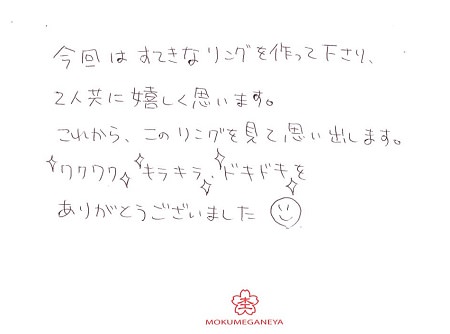 今回はすてきなリングを作って下さり、
2人共に嬉しく思います。
これから、このリングを見て思い出します。
ワクワク、キラキラ、ドキドキを
ありがとうございました
MOKUMEGANEYA